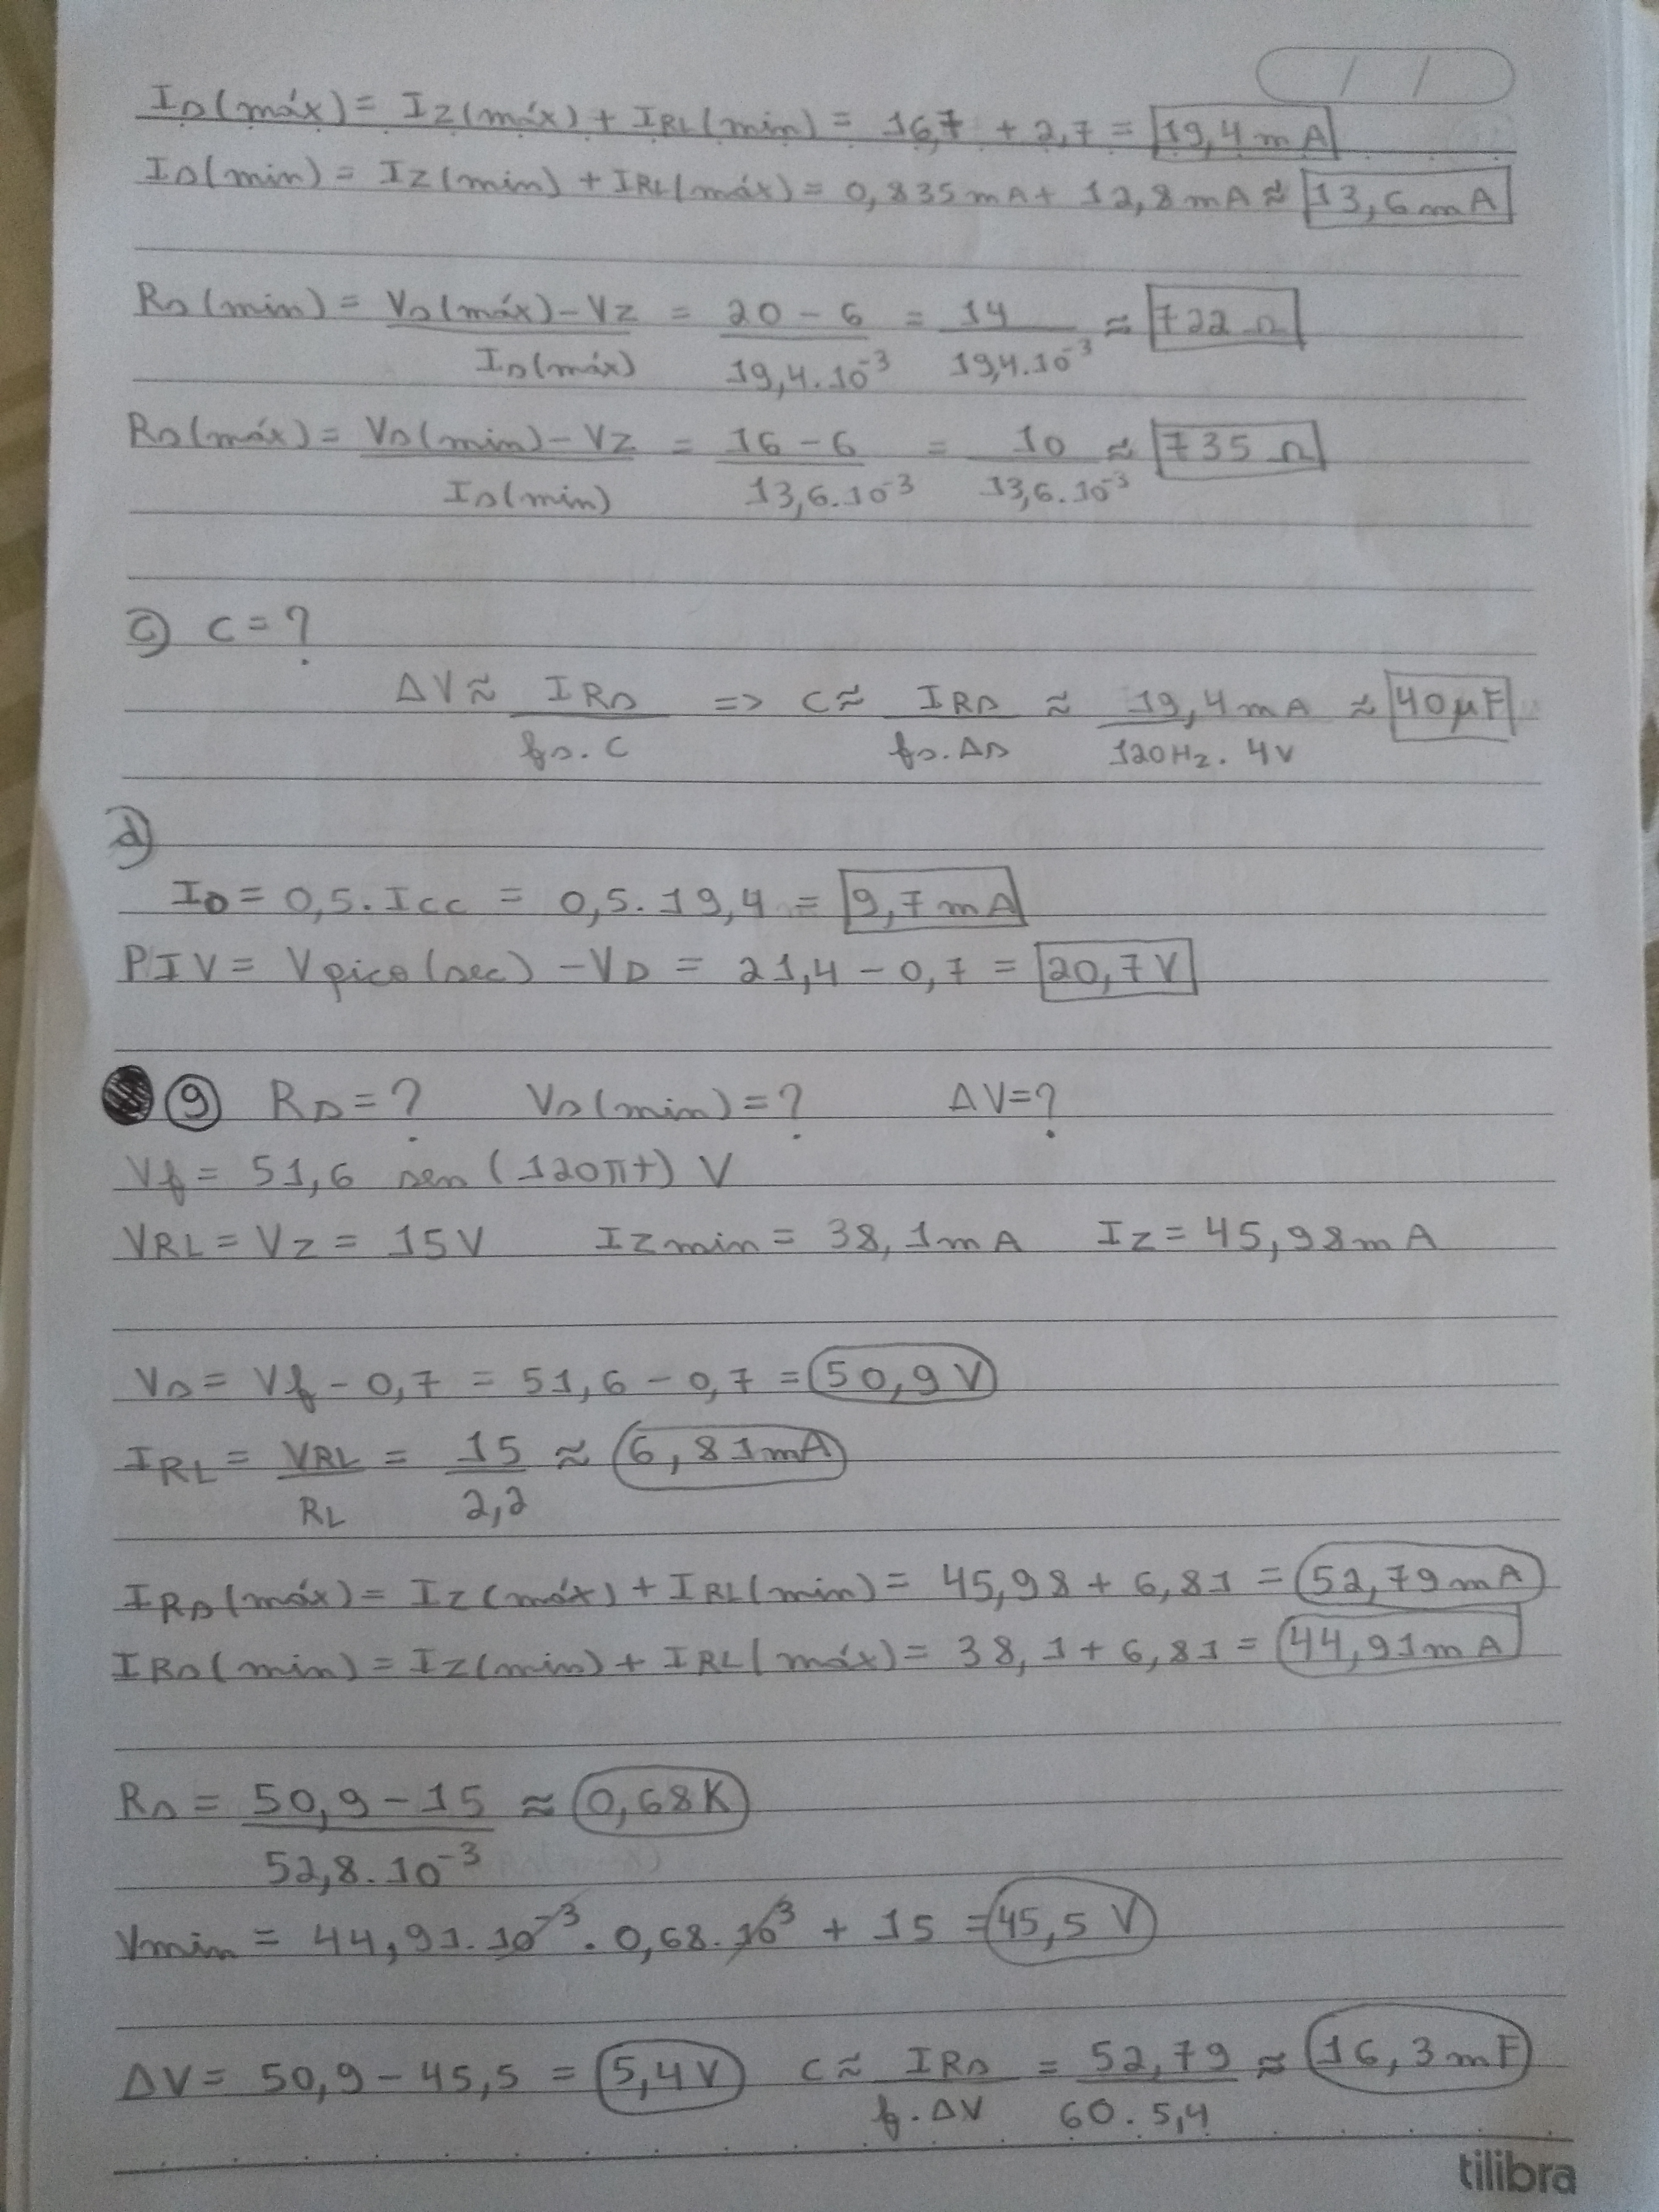 / /
Is(máx) = Iz(máx) + IRL(min) = 16,7 + 2,7 = 19,4 mA
Is(min) = Iz(min) + IRL(máx) = 0,835mA + 12,8mA ≈ 13,6mA
Rs(min) = Vs(máx) - Vz / Is(máx) = 20 - 6 / 19,4.10⁻³ = 14 / 19,4.10⁻³ ≈ 722 Ω
Rs(máx) = Vs(min) - Vz / Is(min) = 16 - 6 / 13,6.10⁻³ = 10 / 13,6.10⁻³ ≈ 735 Ω
c) C = ?
ΔV ≈ IRs / fs.C => C ≈ IRs / fs.Δs ≈ 19,4mA / 120Hz.4V ≈ 40μF
d)
ID = 0,5.Icc = 0,5.19,4 = 9,7mA
PIV = Vpico(sec) - VD = 21,4 - 0,7 = 20,7V
9 Rs = ? Vs(min) = ? ΔV = ?
Vf = 51,6 sen(120πt) V
VRL = Vz = 15V Izmin = 38,1mA Iz = 45,98mA
Vs = Vf - 0,7 = 51,6 - 0,7 = 50,9V
IRL = VRL / RL = 15 / 2,2 ≈ 6,81mA
IRs(máx) = Iz(máx) + IRL(min) = 45,98 + 6,81 = 52,79mA
IRs(min) = Iz(min) + IRL(máx) = 38,1 + 6,81 = 44,91mA
Rs = 50,9 - 15 / 52,8.10⁻³ ≈ 0,68K
Vmin = 44,91.10⁻³.0,68.10³ + 15 = 45,5 V
ΔV = 50,9 - 45,5 = 5,4V C ≈ IRs / f.ΔV = 52,79 / 60.5,4 ≈ 16,3mF
tilibra